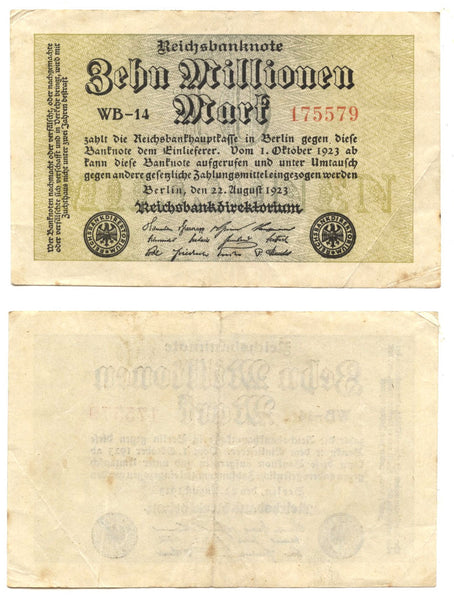 Wer Banknoten nachmacht oder verfälscht, oder nachgemachte
oder verfälschte sich verschafft und in Verkehr bringt, wird mit
Zuchthaus nicht unter zwei Jahren bestraft
Reichsbanknote
Zehn Millionen
WB-14 Mark 175579
zahlt die Reichsbankhauptkasse in Berlin gegen diese
Banknote dem Einlieferer. Vom 1. Oktober 1923 ab
kann diese Banknote aufgerufen und unter Umtausch
gegen andere gesetzliche Zahlungsmittel eingezogen werden
Berlin, den 22. August 1923
Reichsbankdirektorium
REICHSBANKDIREKTORIUM
REICHSBANKDIREKTORIUM